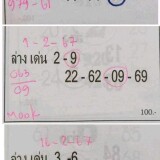 979-61
1-2-67
ล่าง เด่น 2-9
063
22-62-09-69
09
100.-
16-2-67
ล่าง เด่น 3-6